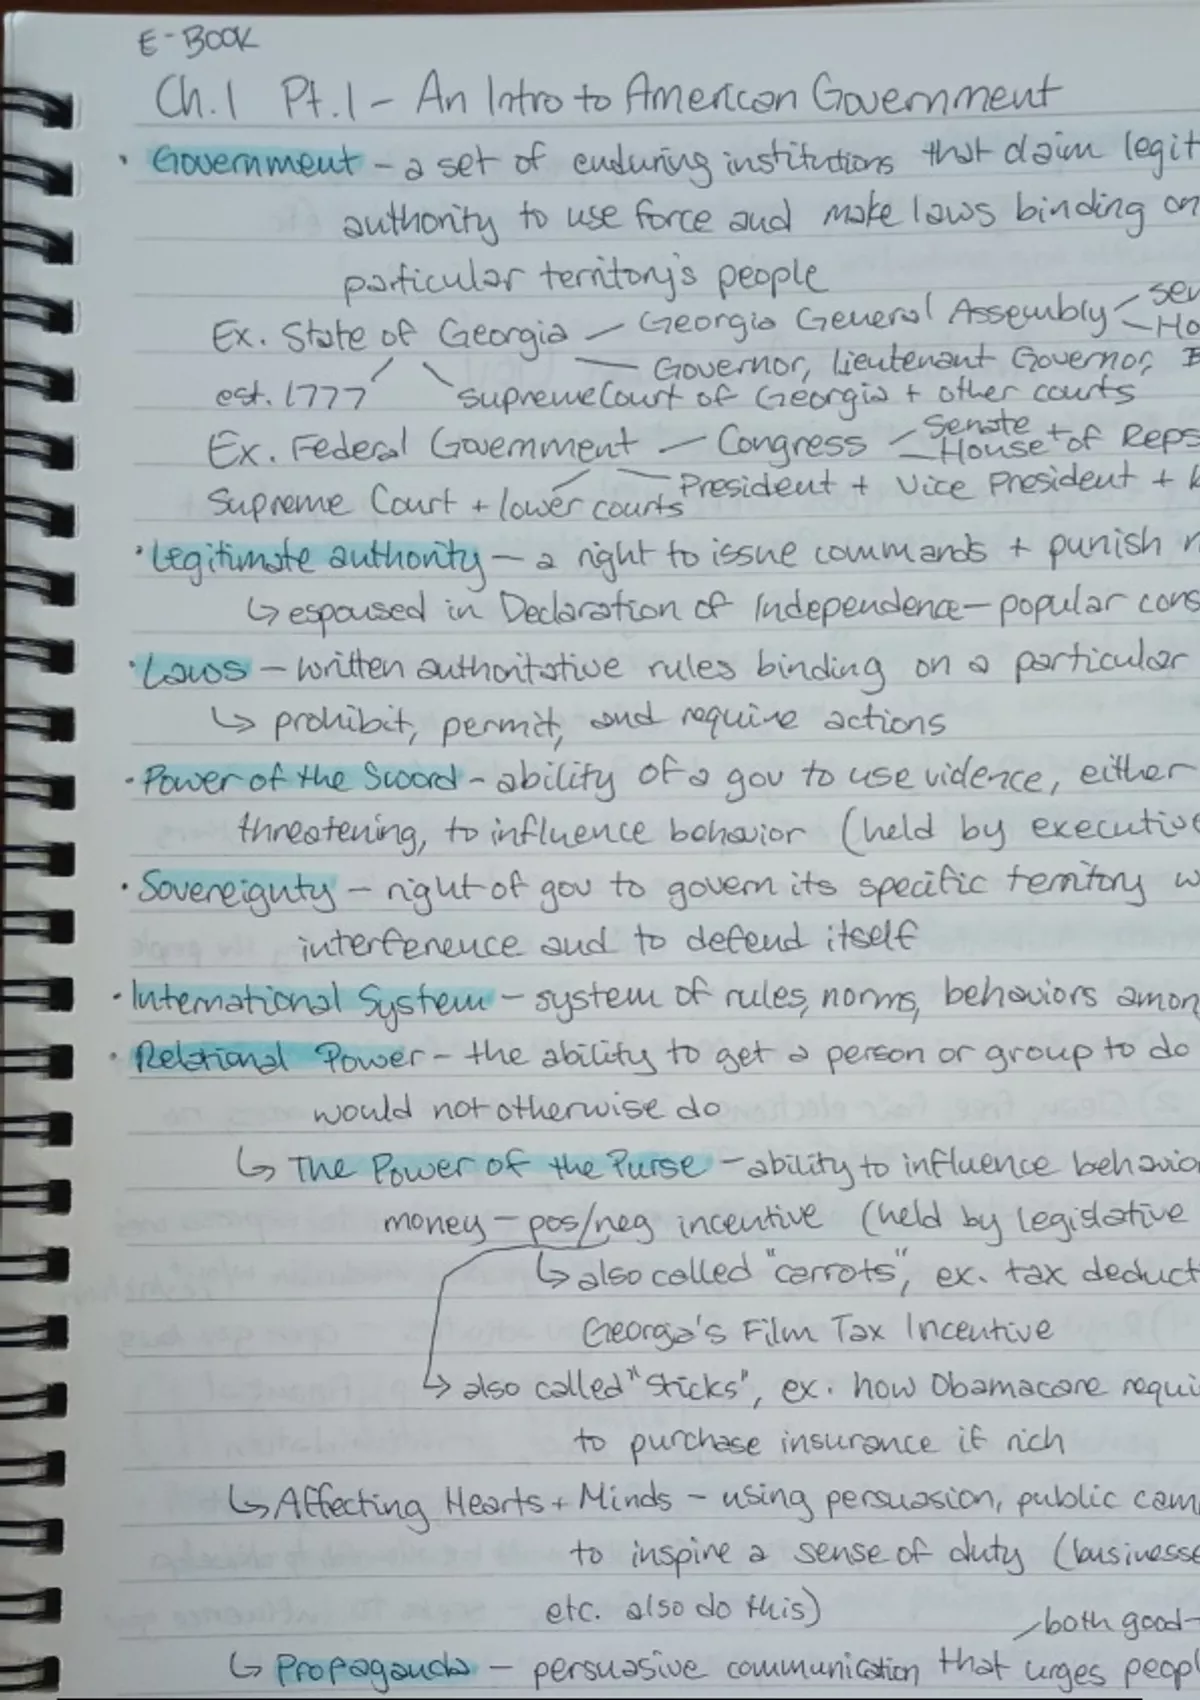 E-BOOK
Ch.1 Pt.1 - An Intro to American Government
• Government - a set of enduring institutions that claim legit
authority to use force and make laws binding on
particular territory's people
Ex. State of Georgia - Georgia General Assembly - Sen
- Ho
- Governor, Lieutenant Governor,
est. 1777 Supreme Court of Georgia + other courts
Ex. Federal Government - Congress - Senate +
House of Reps
President + Vice President +
Supreme Court + lower courts
• Legitimate authority - a right to issue commands + punish
↳ espoused in Declaration of Independence - popular cons
• Laws - written authoritative rules binding on a particular
↳ prohibit, permit, and require actions
• Power of the Sword - ability of a gov to use violence, either
threatening, to influence behavior (held by executive
• Sovereignty - right of gov to govern its specific territory w
interference and to defend itself
• International System - system of rules, norms, behaviors amon
• Relational Power - the ability to get a person or group to do
would not otherwise do
↳ The Power of the Purse - ability to influence behavio
money - pos/neg incentive (held by legislative
↳ also called "carrots", ex. tax deduct
Georgia's Film Tax Incentive
↳ also called "sticks", ex. how Obamacare requi
to purchase insurance if rich
↳ Affecting Hearts + Minds - using persuasion, public cam
to inspire a sense of duty (businesse
etc. also do this)
both good-
↳ Propaganda - persuasive communication that urges peopl